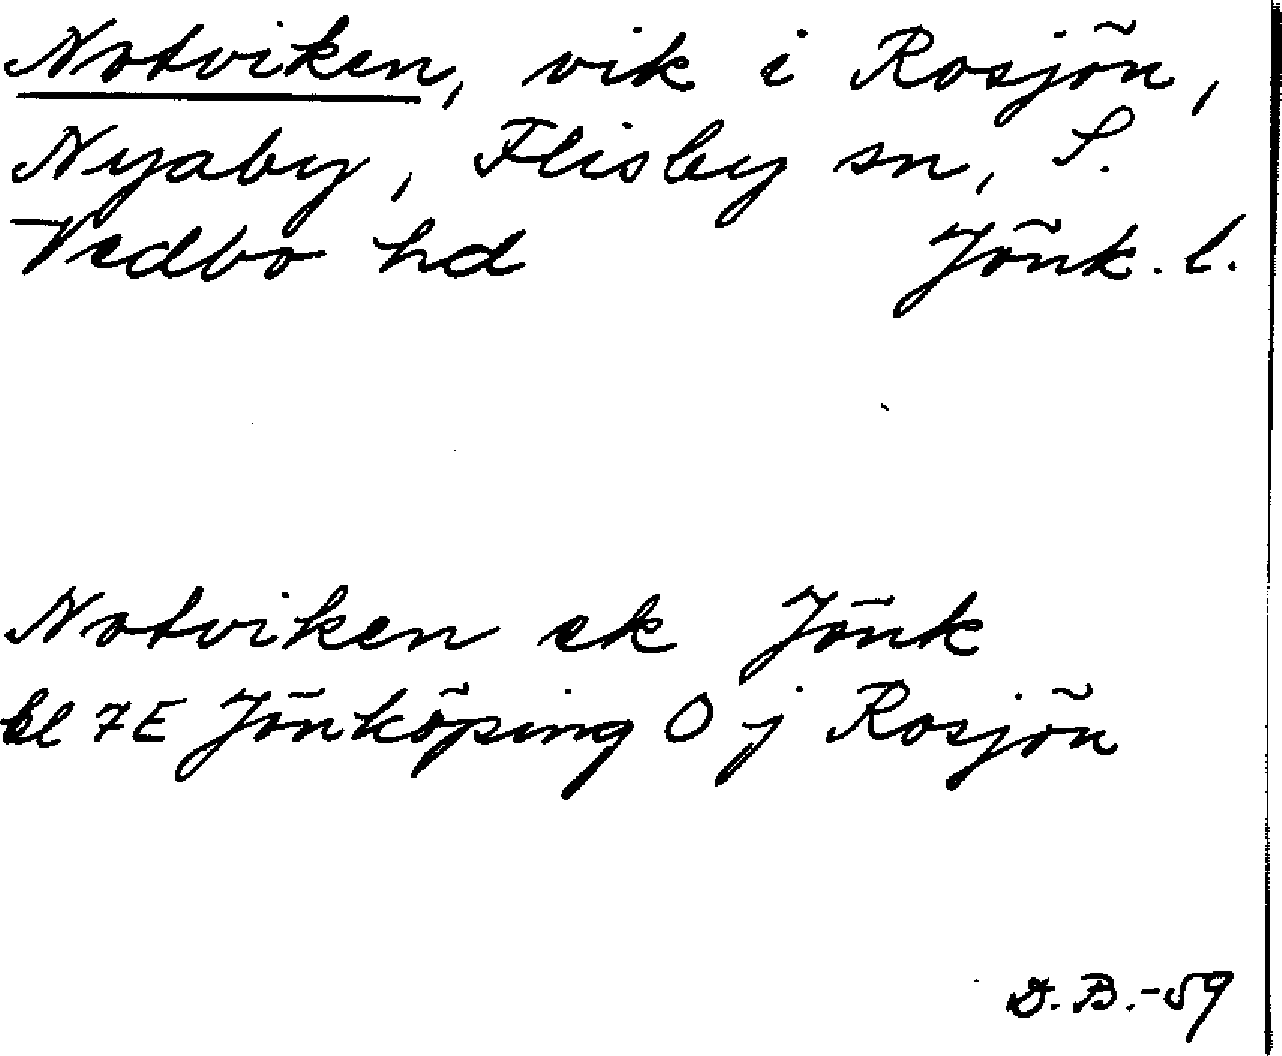 Notviken, vik i Rosjön,
Nyaby, Flisby sn, S.
Vedbo hd Jönk. l.
Notviken ek Jönk
bl 7E Jönköping O j Rosjön
D.B.-59